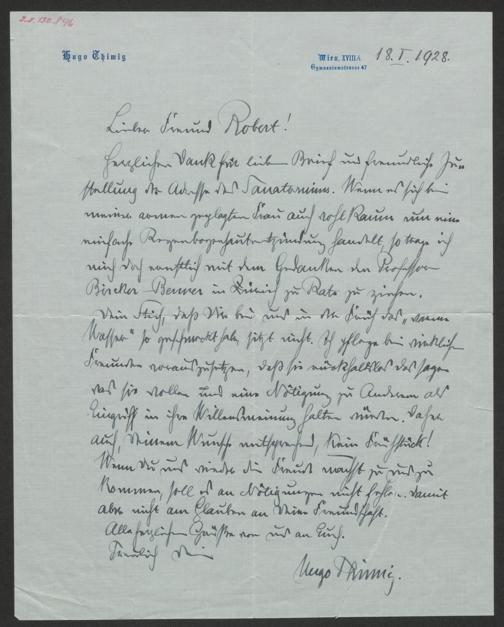 Hugo Thimig
Wien, XVIII/1. 18. I. 1928.
Gymnasiumstrasse 47
Lieber Freund Robert!
Herzlichen Dank für lieben Brief und freundliche Zu=
stellung der Adresse des Sanatoriums. Wenn es sich bei
meiner armen geplagten Frau auch wohl kaum um eine
einfache Regenbogenhautentzündung handelt, so trage ich
mich doch ernstlich mit dem Gedanken den Professor
Bircher-Benner in Zürich zu Rate zu ziehen.
Dein Stich, daß Dir bei uns in der Früh das „warme
Wasser" so geschmeckt habe, sitzt nicht. Ich pflege bei wirklichen
Freunden vorauszusetzen, daß sie rückhaltlos das sagen
was sie wollen und eine Nötigung zu Anderem als
Eingriff in ihre Willensmeinung halten würden. Daher
auch, Deinem Wunsch entsprechend, kein Frühstück!
Wenn Du uns wieder die Freude machst zu uns zu
kommen, soll es an Nötigungen nicht fehlen. Damit
aber nicht am Glauben an Deine Freundschaft.
Alle herzlichen Grüße von uns an Euch.
Treulich Dein
Hugo Thimig.